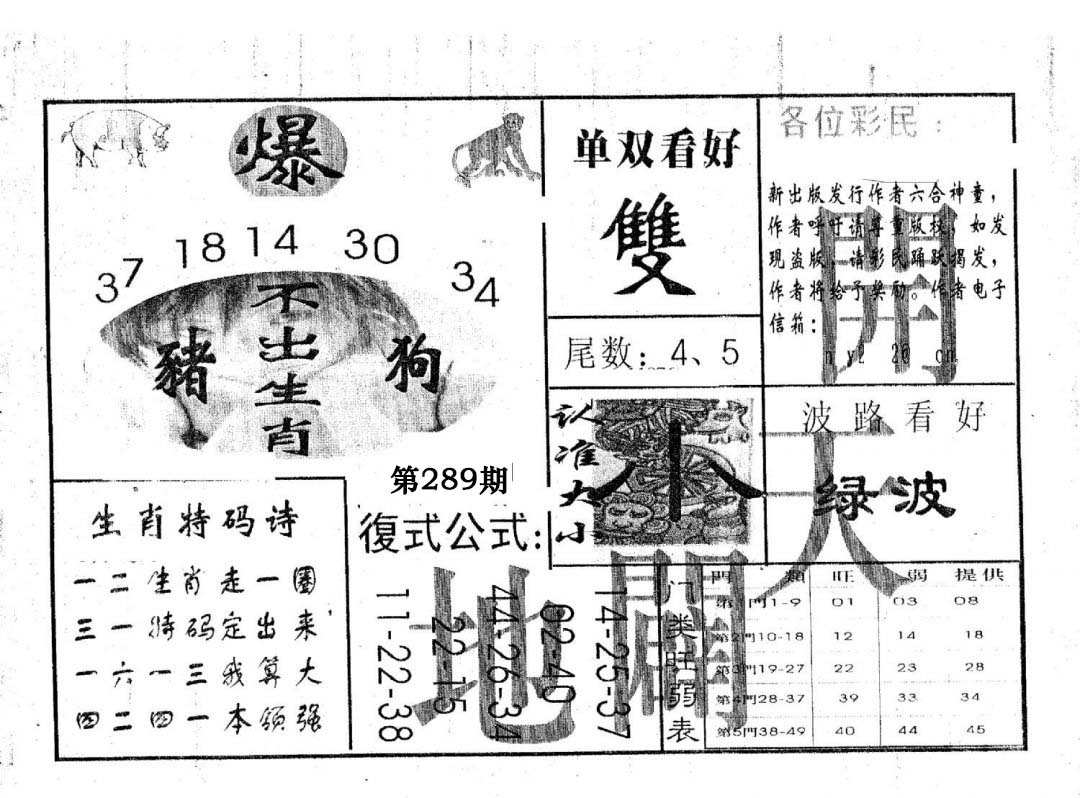 爆
37 18 14 30 34
不出生肖
豬
狗
第289期
单双看好
雙
尾数：4、5
认准大小
小
各位彩民：
新出版发行作者六合神童，
作者呼吁请尊重版权，如发
现盗版，请彩民踊跃揭发，
作者将给予奖励。作者电子
信箱：
波路看好
绿波
開天
地
生肖特码诗
一二生肖走一圈
三一特码定出来
一六一三我算大
四二四一本领强
復式公式：
11-22-38
22-15
44-26-34
02-40
14-25-37
门类旺弱表
門類 旺 弱 提供
第1門1-9 01 03 08
第2門10-18 12 14 18
第3門19-27 22 23 28
第4門28-37 39 33 34
第5門38-49 40 44 45